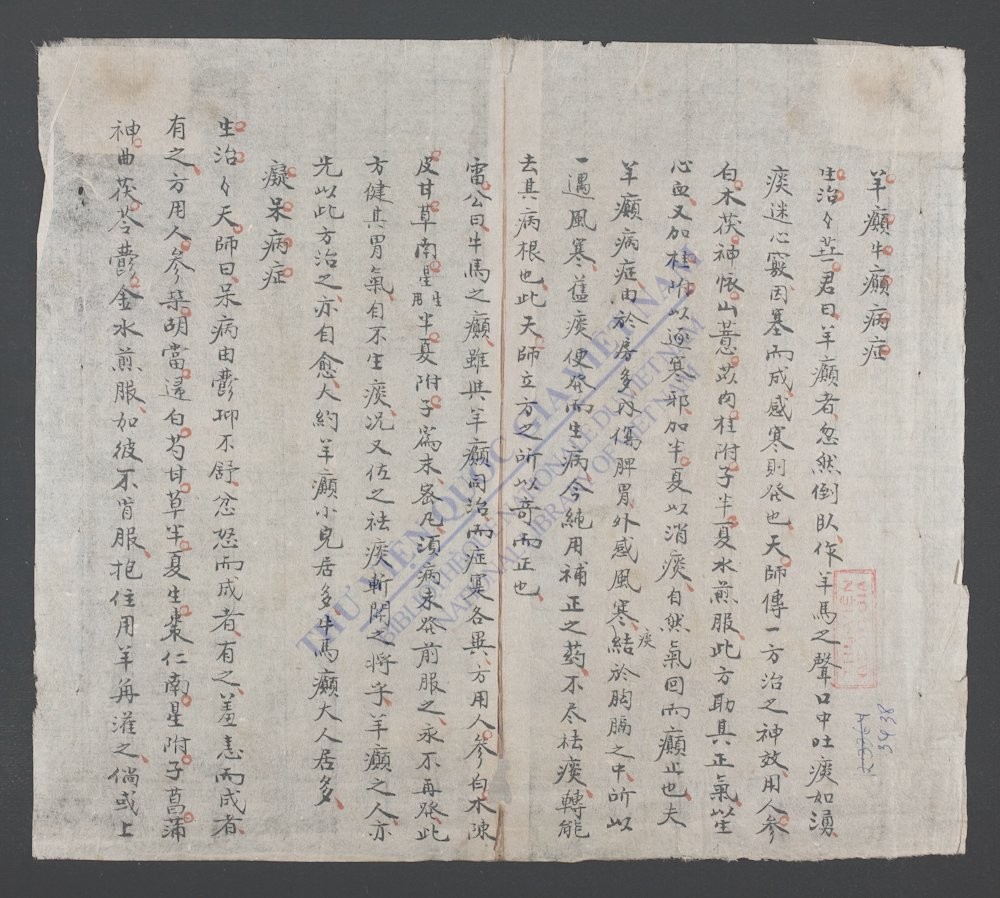 羊癲牛癲病症
生治々岐君曰羊癲者忽然倒臥作羊馬之聲口中吐痰如湧
痰迷心竅因塞而成感寒則發也天師傳一方治之神效用人參
白朮茯神懷山薏苡肉桂附子半夏水煎服此方助其正氣以生
心血又加桂附以逐寒邪加半夏以消痰自然氣回而癲止也夫
羊癲病症由於房多內傷脾胃外感風寒痰結於胸膈之中所以
一遇風寒舊痰便發而生病今純用補正之药不尽祛痰轉能
去其病根也此天師立方之所以奇而正也
雷公曰牛馬之癲雖與羊癲同治而症寔各異方用人參白朮陳
皮甘草南星生用半夏附子為末密凡須病未發前服之永不再發此
方健其胃氣自不生痰况又佐之祛痰斬關之將乎羊癲之人亦
先以此方治之亦自愈大約羊癲小兒居多牛馬癲大人居多
癡呆病症
生治々天師曰呆病由鬱抑不舒忿怒而成者有之羞恚而成者
有之方用人參柴胡當歸白芍甘草半夏生棗仁南星附子菖蒲
神曲茯苓鬱金水煎服如彼不肯服抱住用羊角灌之倘或上
THƯ VIỆN QUỐC GIA VIỆT NAM
BIBLIOTHÈQUE NATIONALE DU VIETNAM
NATIONAL LIBRARY OF VIETNAM